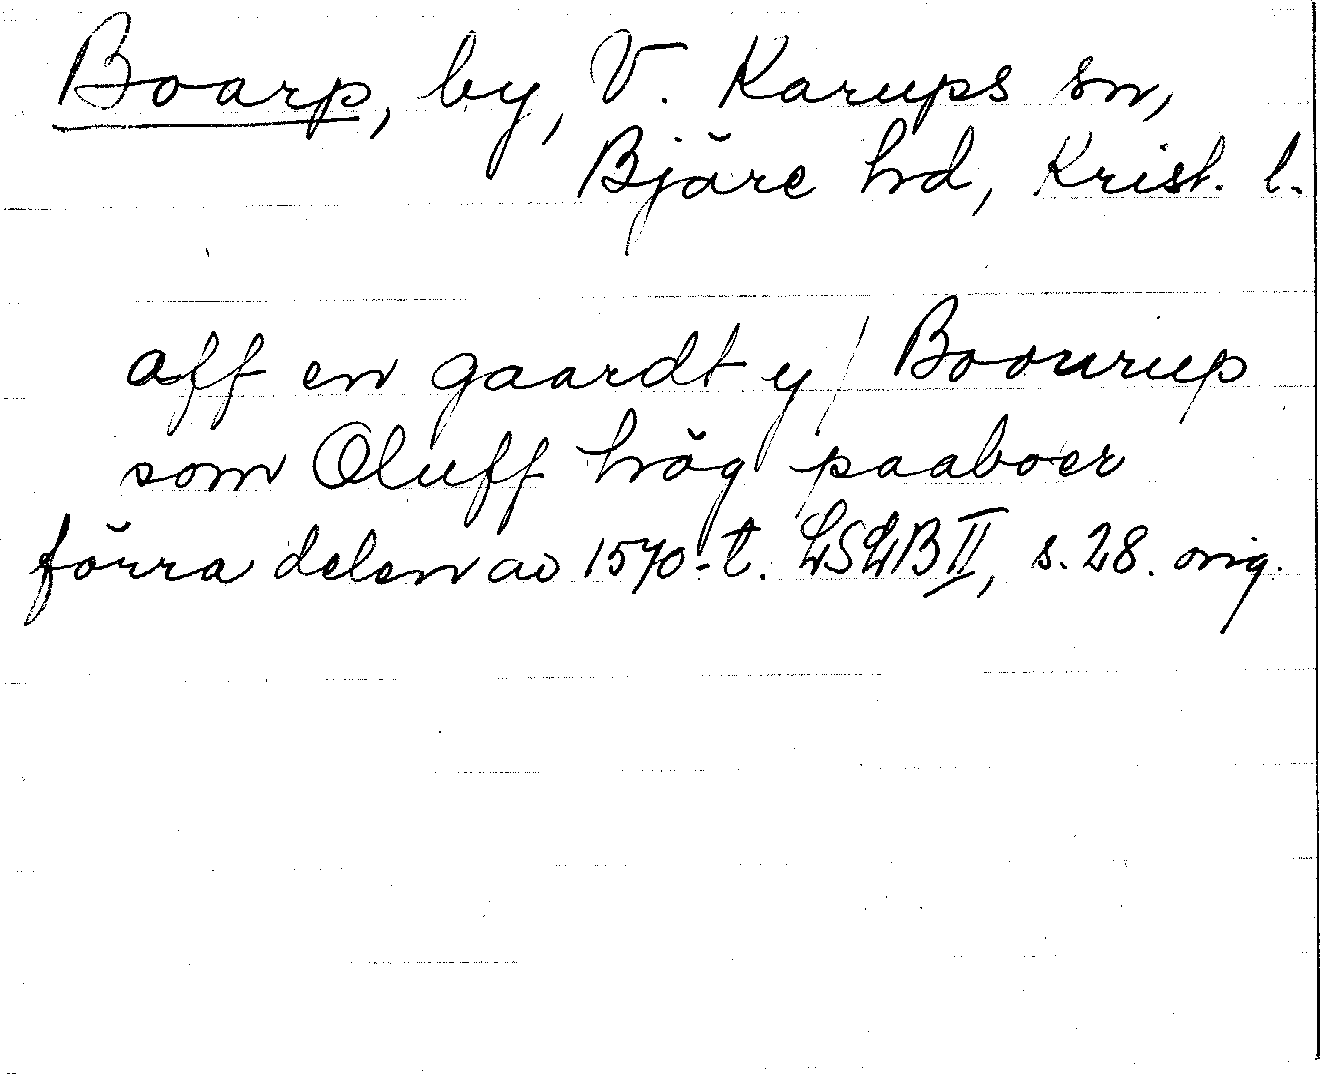 Boarp, by, V. Karups sn,
Bjäre hd, Krist. l.
aff en gaardt y / Boourup
som Oluff hög paaboer
förra delen av 1570-t. LSLB II, s. 28. orig.